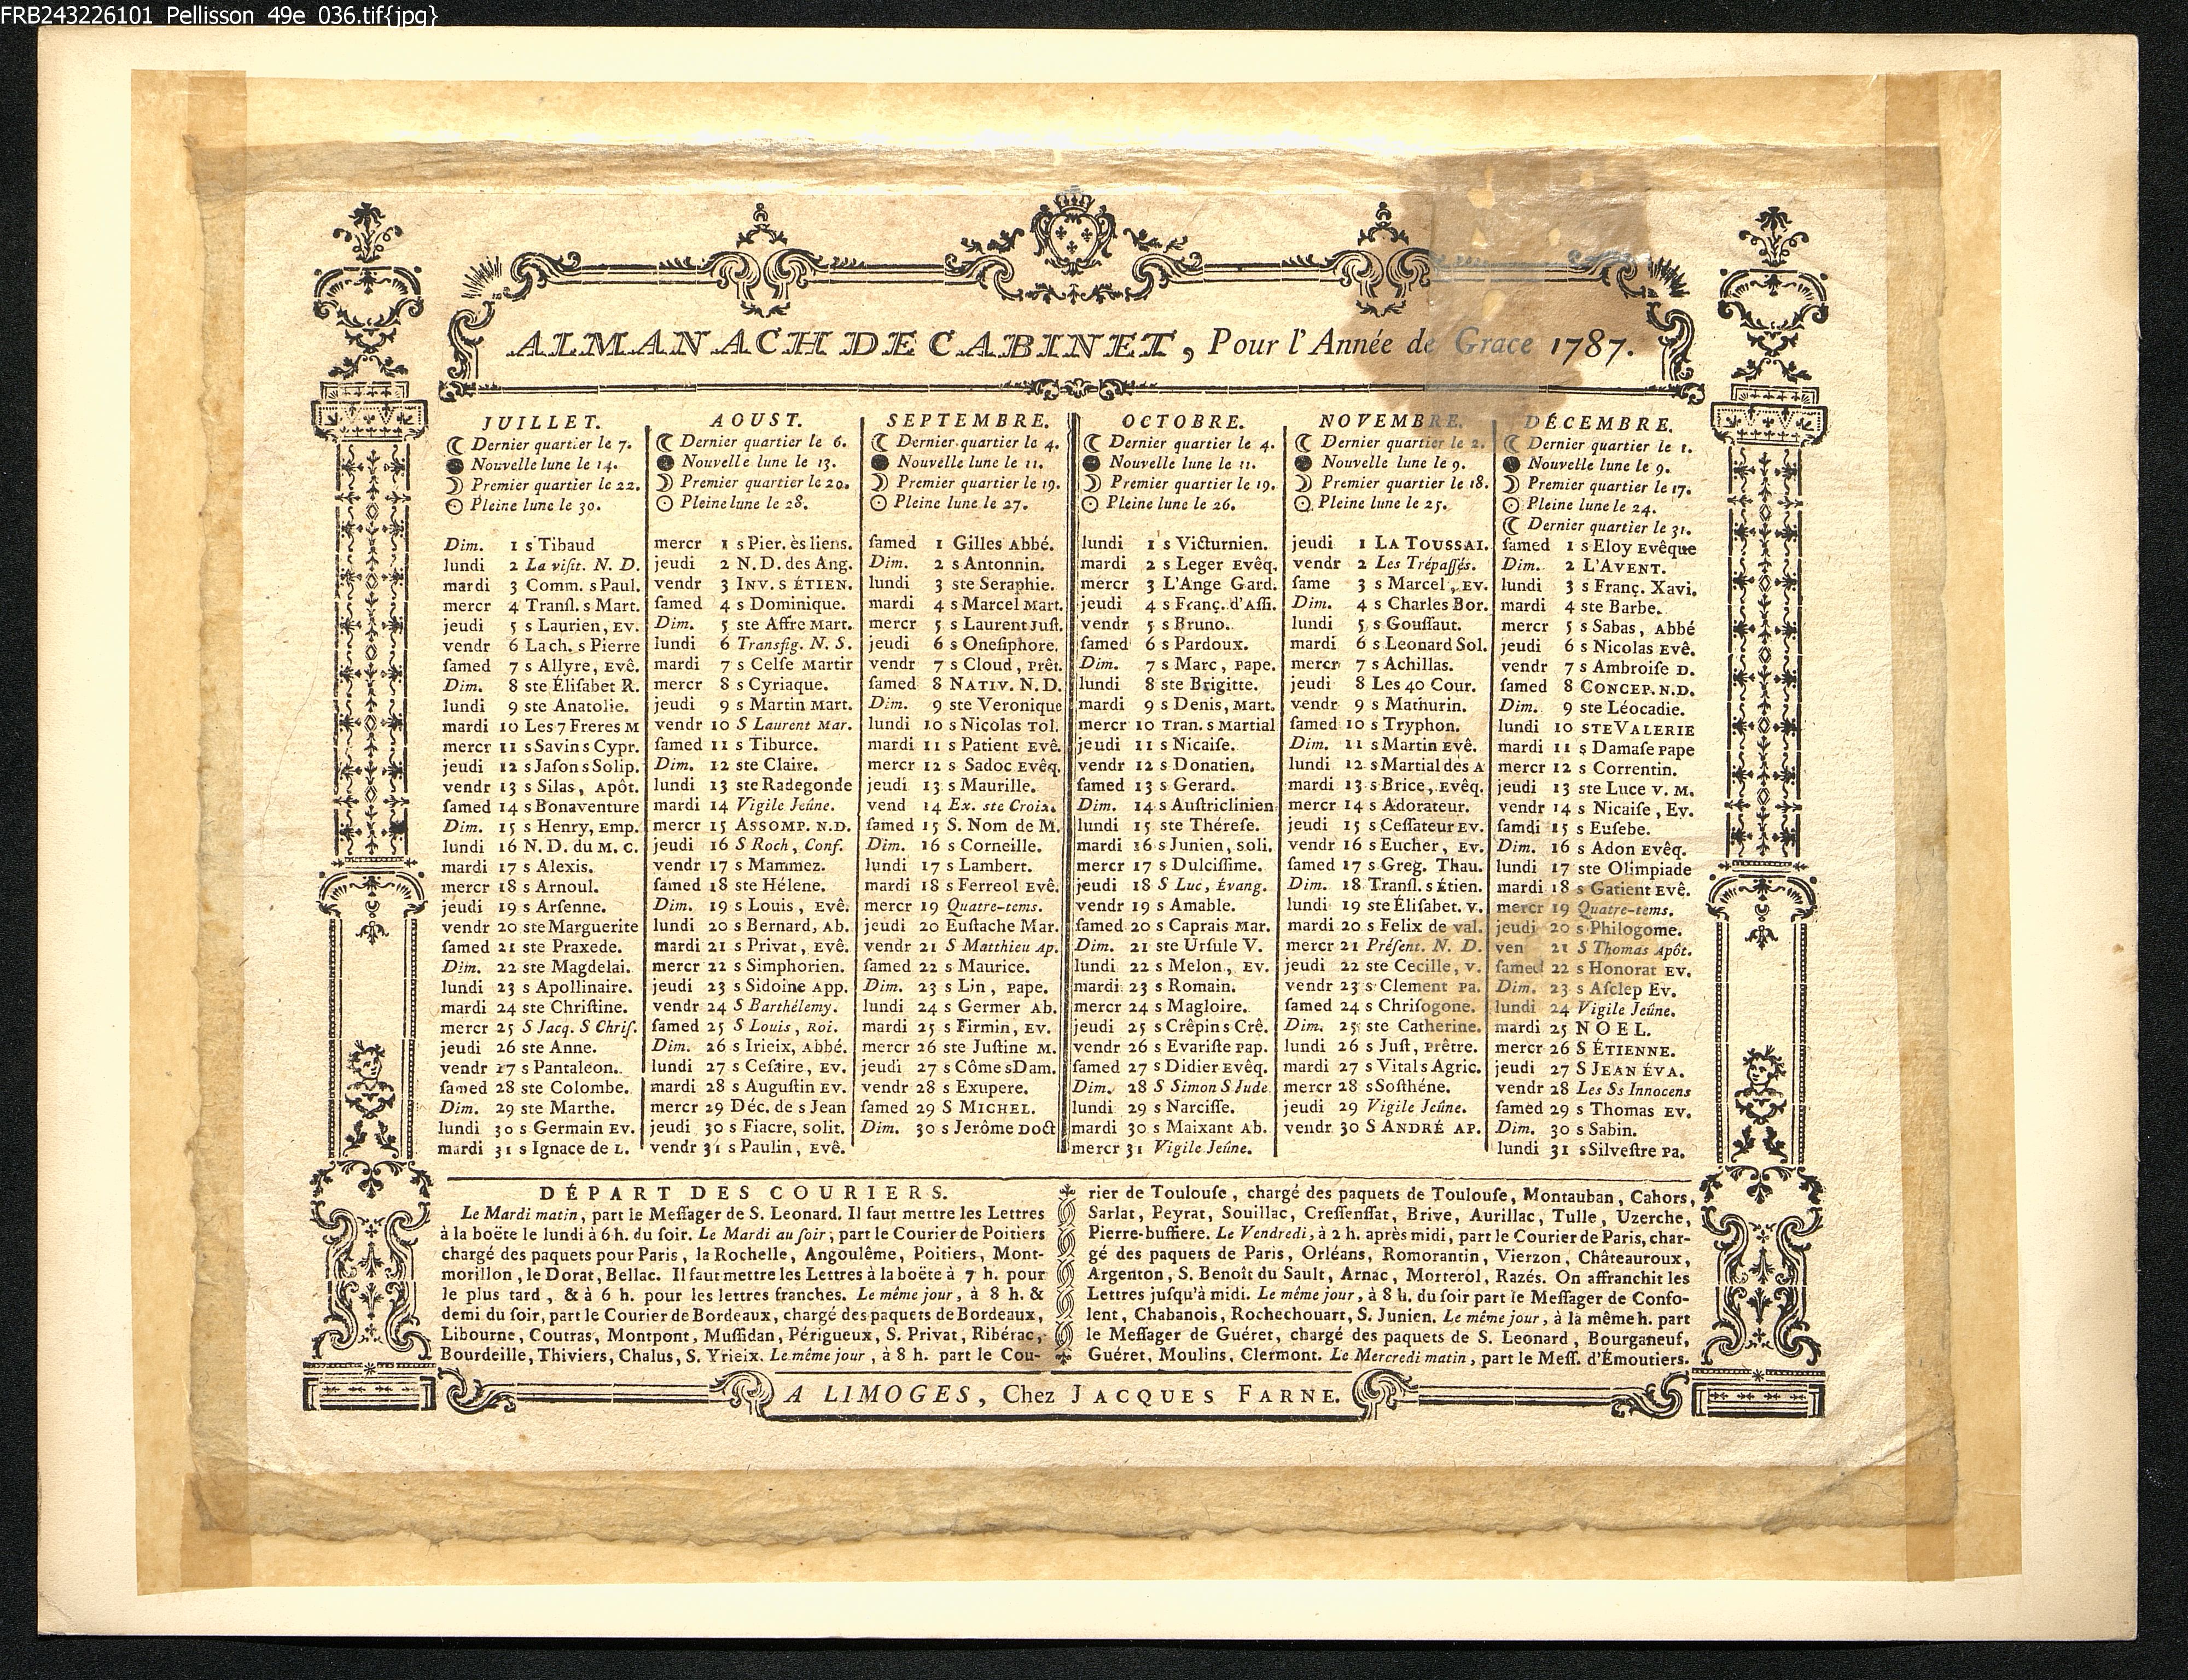 FRB243226101_Pellisson_49e_036.tif{jpg}
ALMANACH DE CABINET, Pour l'Année de Grace 1787.
JUILLET.
Dernier quartier le 7.
Nouvelle lune le 14.
Premier quartier le 22.
Pleine lune le 30.
Dim. 1 s Tibaud
lundi 2 La visit. N. D.
mardi 3 Comm. s Paul.
mercr 4 Transl. s Mart.
jeudi 5 s Laurien, Ev.
vendr 6 La ch. s Pierre
samed 7 s Allyre, Evê.
Dim. 8 ste Élisabet R.
lundi 9 ste Anatolie.
mardi 10 Les 7 Freres M
mercr 11 s Savin s Cypr.
jeudi 12 s Jason s Solip.
vendr 13 s Silas, Apôt.
samed 14 s Bonaventure
Dim. 15 s Henry, Emp.
lundi 16 N. D. du M. C.
mardi 17 s Alexis.
mercr 18 s Arnoul.
jeudi 19 s Arsenne.
vendr 20 ste Marguerite
samed 21 ste Praxede.
Dim. 22 ste Magdelai.
lundi 23 s Apollinaire.
mardi 24 ste Christine.
mercr 25 S Jacq. S Chris.
jeudi 26 ste Anne.
vendr 27 s Pantaleon.
samed 28 ste Colombe.
Dim. 29 ste Marthe.
lundi 30 s Germain Ev.
mardi 31 s Ignace de L.
AOUST.
Dernier quartier le 6.
Nouvelle lune le 13.
Premier quartier le 20.
Pleine lune le 28.
mercr 1 s Pier. ès liens.
jeudi 2 N. D. des Ang.
vendr 3 Inv. s Étien.
samed 4 s Dominique.
Dim. 5 ste Affre Mart.
lundi 6 Transfig. N. S.
mardi 7 s Celse Martir
mercr 8 s Cyriaque.
jeudi 9 s Martin Mart.
vendr 10 S Laurent Mar.
samed 11 s Tiburce.
Dim. 12 ste Claire.
lundi 13 ste Radegonde
mardi 14 Vigile Jeûne.
mercr 15 Assomp. N.D.
jeudi 16 S Roch, Conf.
vendr 17 s Mammez.
samed 18 ste Hélene.
Dim. 19 s Louis, Evê.
lundi 20 s Bernard, Ab.
mardi 21 s Privat, Evê.
mercr 22 s Simphorien.
jeudi 23 s Sidoine App.
vendr 24 S Barthélemy.
samed 25 S Louis, Roi.
Dim. 26 s Irieix, Abbé.
lundi 27 s Cesaire, Ev.
mardi 28 s Augustin Ev.
mercr 29 Déc. de s Jean
jeudi 30 s Fiacre, solit.
vendr 31 s Paulin, Evê.
SEPTEMBRE.
Dernier quartier le 4.
Nouvelle lune le 11.
Premier quartier le 19.
Pleine lune le 27.
samed 1 Gilles Abbé.
Dim. 2 s Antonnin.
lundi 3 ste Seraphie.
mardi 4 s Marcel Mart.
mercr 5 s Laurent Just.
jeudi 6 s Onesiphore.
vendr 7 s Cloud, Prêt.
samed 8 Nativ. N. D.
Dim. 9 ste Veronique
lundi 10 s Nicolas Tol.
mardi 11 s Patient Evê.
mercr 12 s Sadoc Evêq.
jeudi 13 s Maurille.
vend 14 Ex. ste Croix.
samed 15 S. Nom de M.
Dim. 16 s Corneille.
lundi 17 s Lambert.
mardi 18 s Ferreol Evê.
mercr 19 Quatre-tems.
jeudi 20 Eustache Mar.
vendr 21 S Matthieu Ap.
samed 22 s Maurice.
Dim. 23 s Lin, Pape.
lundi 24 s Germer Ab.
mardi 25 s Firmin, Ev.
mercr 26 ste Justine M.
jeudi 27 s Côme s Dam.
vendr 28 s Exupere.
samed 29 S Michel.
Dim. 30 s Jerôme Doct
OCTOBRE.
Dernier quartier le 4.
Nouvelle lune le 11.
Premier quartier le 19.
Pleine lune le 26.
lundi 1 s Victurnien.
mardi 2 s Leger Evêq.
mercr 3 L'Ange Gard.
jeudi 4 s Franç. d'Assi.
vendr 5 s Bruno.
samed 6 s Pardoux.
Dim. 7 s Marc, Pape.
lundi 8 ste Brigitte.
mardi 9 s Denis, Mart.
mercr 10 Tran. s Martial
jeudi 11 s Nicaise.
vendr 12 s Donatien.
samed 13 s Gerard.
Dim. 14 s Austriclinien
lundi 15 ste Thérese.
mardi 16 s Junien, soli.
mercr 17 s Dulcissime.
jeudi 18 S Luc, Évang.
vendr 19 s Amable.
samed 20 s Caprais Mar.
Dim. 21 ste Ursule V.
lundi 22 s Melon, Ev.
mardi 23 s Romain.
mercr 24 s Magloire.
jeudi 25 s Crêpin s Crê.
vendr 26 s Evariste Pap.
samed 27 s Didier Evêq.
Dim. 28 S Simon S Jude
lundi 29 s Narcisse.
mardi 30 s Maixant Ab.
mercr 31 Vigile Jeûne.
NOVEMBRE.
Dernier quartier le 2.
Nouvelle lune le 9.
Premier quartier le 18.
Pleine lune le 25.
jeudi 1 La Toussai.
vendr 2 Les Trépassés.
same 3 s Marcel, Ev.
Dim. 4 s Charles Bor.
lundi 5 s Goussaut.
mardi 6 s Leonard Sol.
mercr 7 s Achillas.
jeudi 8 Les 40 Cour.
vendr 9 s Mathurin.
samed 10 s Tryphon.
Dim. 11 s Martin Evê.
lundi 12 s Martial des A
mardi 13 s Brice, Evêq.
mercr 14 s Adorateur.
jeudi 15 s Cessateur Ev.
vendr 16 s Eucher, Ev.
samed 17 s Greg. Thau.
Dim. 18 Transl. s Étien.
lundi 19 ste Élisabet. v.
mardi 20 s Felix de val.
mercr 21 Présent. N. D.
jeudi 22 ste Cecille, v.
vendr 23 s Clement Pa.
samed 24 s Chrisogone.
Dim. 25 ste Catherine.
lundi 26 s Just, Prêtre.
mardi 27 s Vital s Agric.
mercr 28 s Sosthéne.
jeudi 29 Vigile Jeûne.
vendr 30 S André Ap.
DÉCEMBRE.
Dernier quartier le 1.
Nouvelle lune le 9.
Premier quartier le 17.
Pleine lune le 24.
Dernier quartier le 31.
samed 1 s Eloy Evêque
Dim. 2 L'Avent.
lundi 3 s Franç. Xavi.
mardi 4 ste Barbe.
mercr 5 s Sabas, Abbé
jeudi 6 s Nicolas Evê.
vendr 7 s Ambroise D.
samed 8 Concep. N.D.
Dim. 9 ste Léocadie.
lundi 10 ste Valerie
mardi 11 s Damase Pape
mercr 12 s Correntin.
jeudi 13 ste Luce v. M.
vendr 14 s Nicaise, Ev.
samdi 15 s Eusebe.
Dim. 16 s Adon Evêq.
lundi 17 ste Olimpiade
mardi 18 s Gatient Evê.
mercr 19 Quatre-tems.
jeudi 20 s Philogome.
ven 21 S Thomas Apôt.
samed 22 s Honorat Ev.
Dim. 23 s Asclep Ev.
lundi 24 Vigile Jeûne.
mardi 25 NOEL.
mercr 26 S Étienne.
jeudi 27 S Jean Éva.
vendr 28 Les Ss Innocens
samed 29 s Thomas Ev.
Dim. 30 s Sabin.
lundi 31 s Silvestre Pa.
DÉPART DES COURIERS.
Le Mardi matin, part le Messager de S. Leonard. Il faut mettre les Lettres
à la boëte le lundi à 6 h. du soir. Le Mardi au soir, part le Courier de Poitiers
chargé des paquets pour Paris, la Rochelle, Angoulême, Poitiers, Mont-
morillon, le Dorat, Bellac. Il faut mettre les Lettres à la boëte à 7 h. pour
le plus tard, & à 6 h. pour les lettres franches. Le même jour, à 8 h. &
demi du soir, part le Courier de Bordeaux, chargé des paquets de Bordeaux,
Libourne, Coutras, Montpont, Mussidan, Périgueux, S. Privat, Ribérac,
Bourdeille, Thiviers, Chalus, S. Yrieix. Le même jour, à 8 h. part le Cou-
rier de Toulouse, chargé des paquets de Toulouse, Montauban, Cahors,
Sarlat, Peyrat, Souillac, Cressenssat, Brive, Aurillac, Tulle, Uzerche,
Pierre-buffiere. Le Vendredi, à 2 h. après midi, part le Courier de Paris, char-
gé des paquets de Paris, Orléans, Romorantin, Vierzon, Châteauroux,
Argenton, S. Benoît du Sault, Arnac, Morterol, Razés. On affranchit les
Lettres jusqu'à midi. Le même jour, à 8 h. du soir part le Messager de Confo-
lent, Chabanois, Rochechouart, S. Junien. Le même jour, à la même h. part
le Messager de Guéret, chargé des paquets de S. Leonard, Bourganeuf,
Guéret, Moulins, Clermont. Le Mercredi matin, part le Mess. d'Émoutiers.
A LIMOGES, Chez JACQUES FARNE.